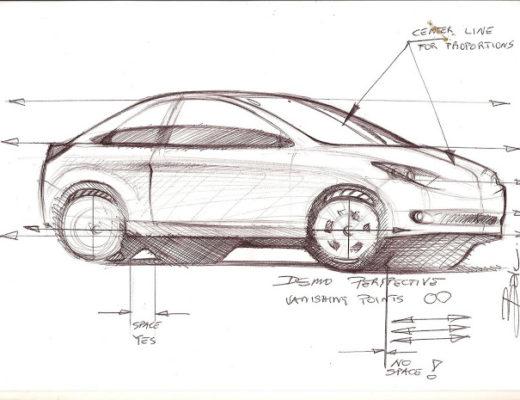 CENTER LINE
FOR PROPORTIONS
DEMO PERSPECTIVE
VANISHING POINTS ∞
SPACE
YES
NO
SPACE!